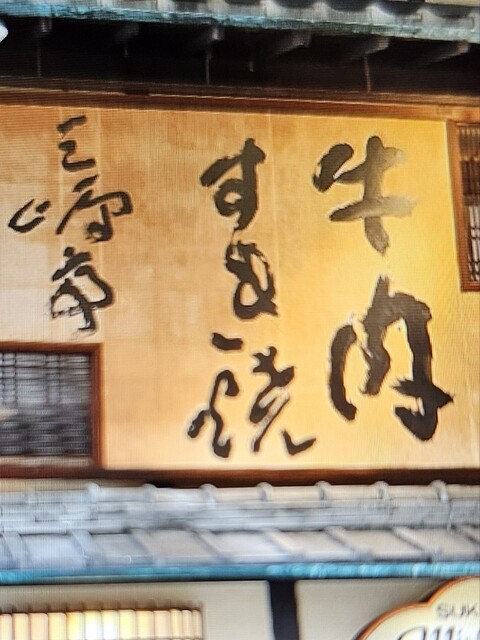 牛肉
すき焼
三嶋亭
SUK